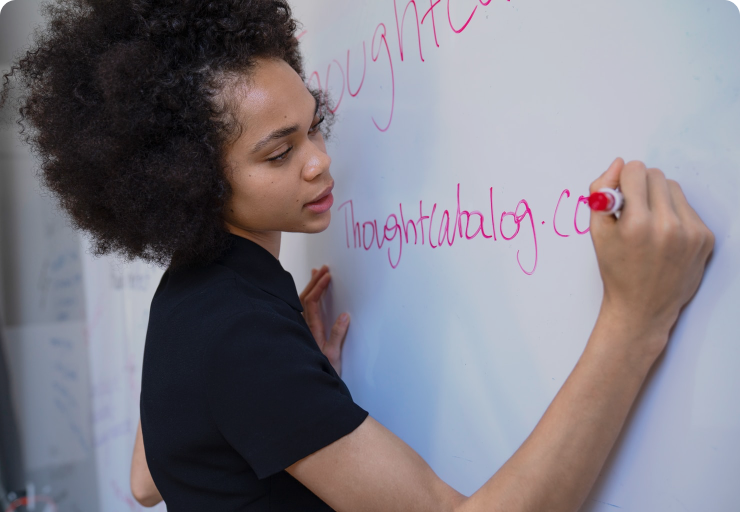 ThoughtCa
ThoughtCatalog.co